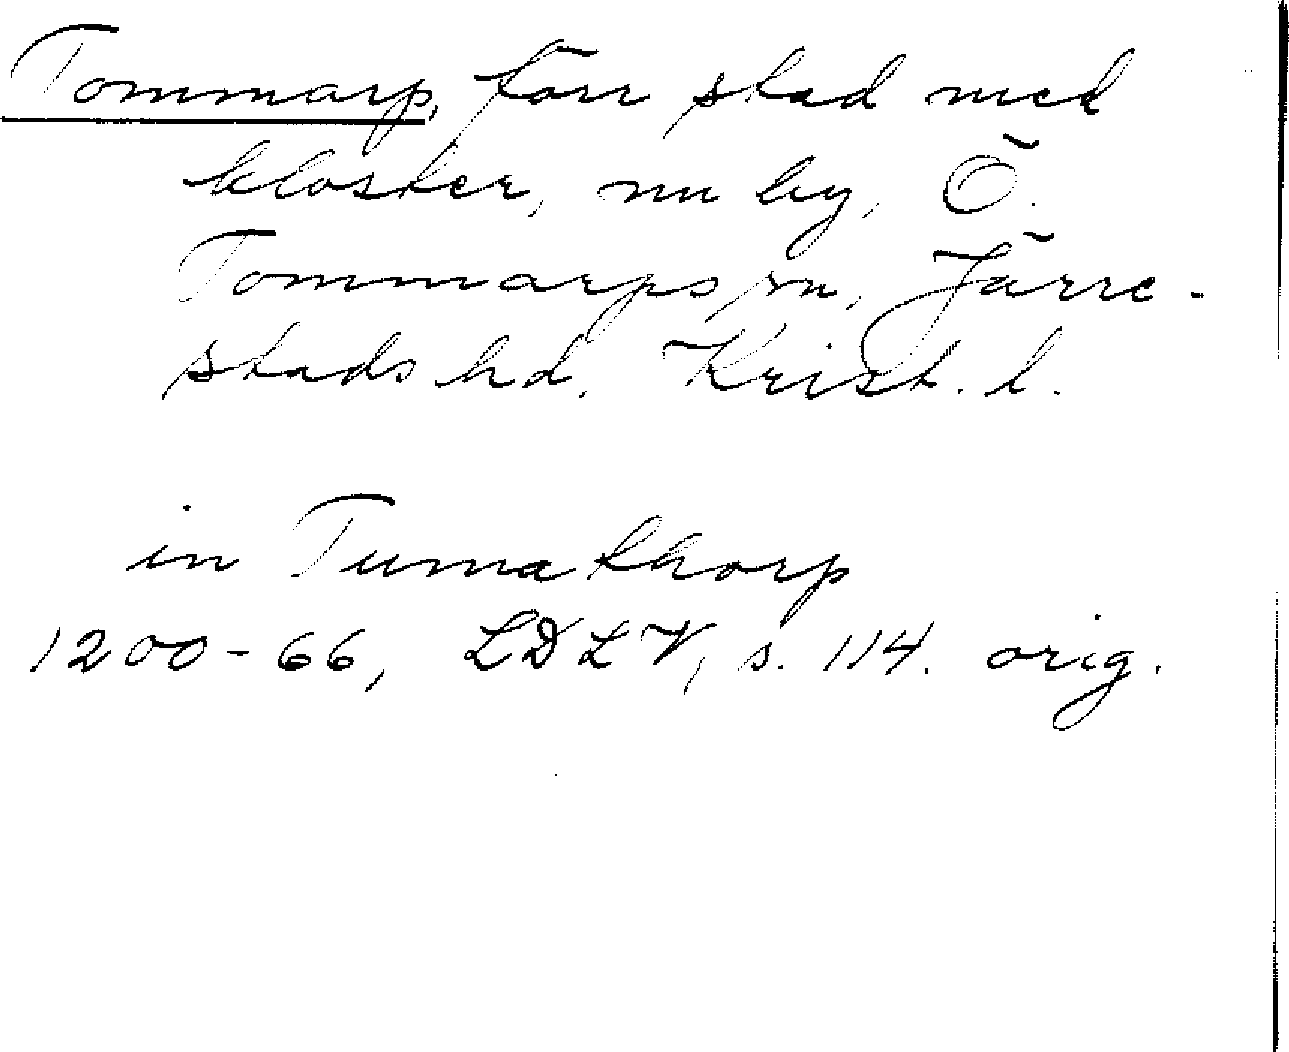 Tommarp, förr stad med
kloster, nu by, Ö.
Tommarps sn, Järre-
stads hd. Krist. l.
in Tumathorp
1200-66, LDLV, s. 114. orig.